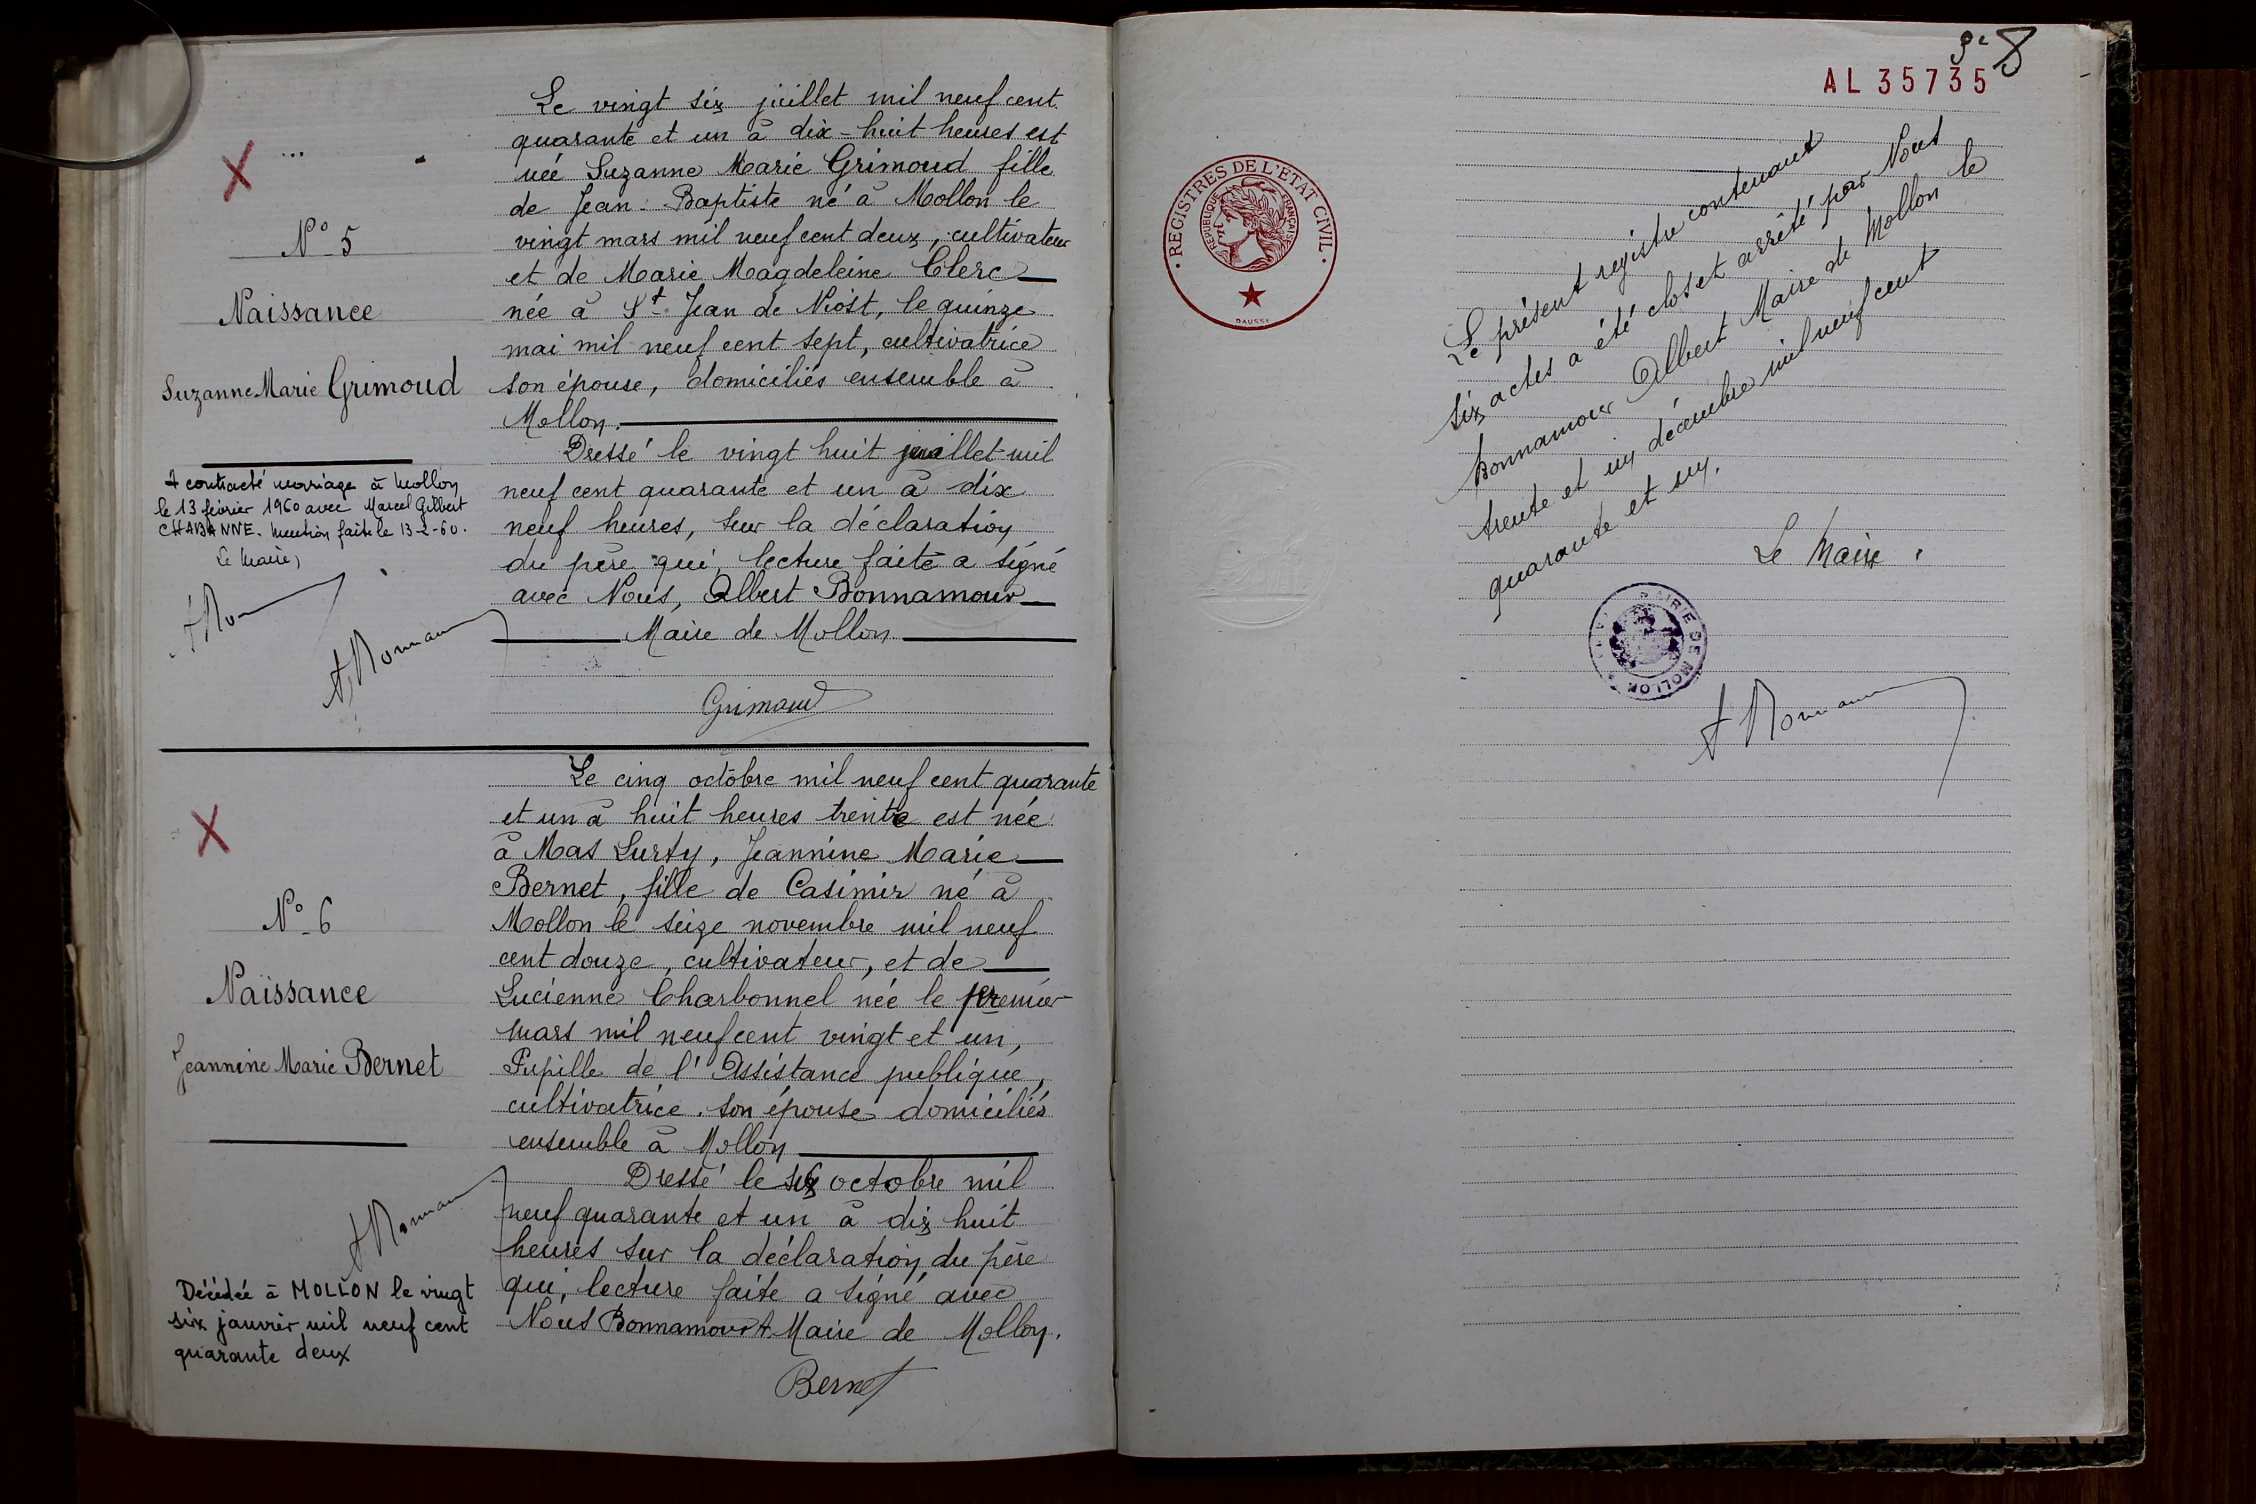 Le vingt six juillet mil neuf cent
quarante et un à dix-huit heures est
née Suzanne Marie Grimoud fille
de Jean-Baptiste né à Mollon le
vingt mars mil neuf cent deux, cultivateur
et de Marie Magdeleine Clerc
née à St Jean de Niost, le quinze
mai mil neuf cent sept, cultivatrice
son épouse, domiciliés ensemble à
Mollon.
Dressé le vingt huit juillet mil
neuf cent quarante et un à dix
neuf heures, sur la déclaration
du père qui, lecture faite a signé
avec Nous, Albert Bonnamour
Maire de Mollon
Grimoud
No 5
Naissance
Suzanne Marie Grimoud
A contracté mariage à Mollon
le 13 février 1960 avec Marcel Gilbert
CHABANNE. Mention faite le 13-2-60.
Le Maire,
Le cinq octobre mil neuf cent quarante
et un à huit heures trente est née
à Mas Lurty, Jeannine Marie
Bernet, fille de Casimir né à
Mollon le seize novembre mil neuf
cent douze, cultivateur, et de
Lucienne Charbonnel née le premier
mars mil neuf cent vingt et un,
Pupille de l'Assistance publique,
cultivatrice. son épouse domiciliés
ensemble à Mollon
Dressé le six octobre mil
neuf quarante et un à dix huit
heures sur la déclaration du père
qui, lecture faite a signé avec
Nous Bonnamour A. Maire de Mollon.
Bernet
No 6
Naissance
Jeannine Marie Bernet
Décédée à MOLLON le vingt
six janvier mil neuf cent
quarante deux
8
AL 35735
REGISTRES DE L'ETAT CIVIL
REPUBLIQUE FRANÇAISE
DAUSSY
Le présent registre contenant
six actes a été clos et arrêté par Nous
Bonnamour Albert Maire de Mollon le
trente et un décembre mil neuf cent
quarante et un.
Le Maire,
MAIRIE DE MOLLON